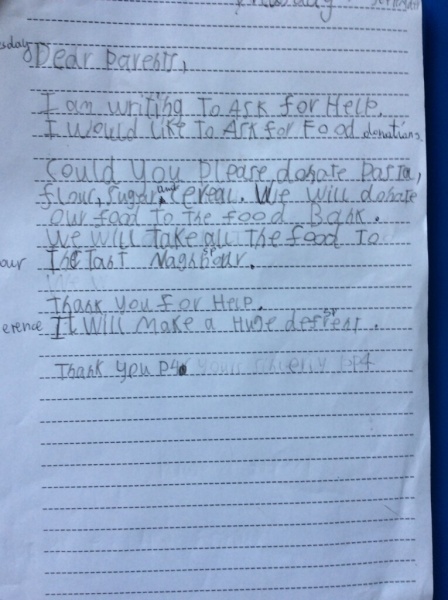 Dear parents,
I am writing To Ask for Help.
I would like To Ask for Food donations.
Could You please donate Pasta,
flour, sugar, and cereal. We will donate
our food to the food Bank.
We will Take all The food To
The Tast Naghbour.
Thank you for Help.
erence It will make a Huge defrent.
Thank you P4